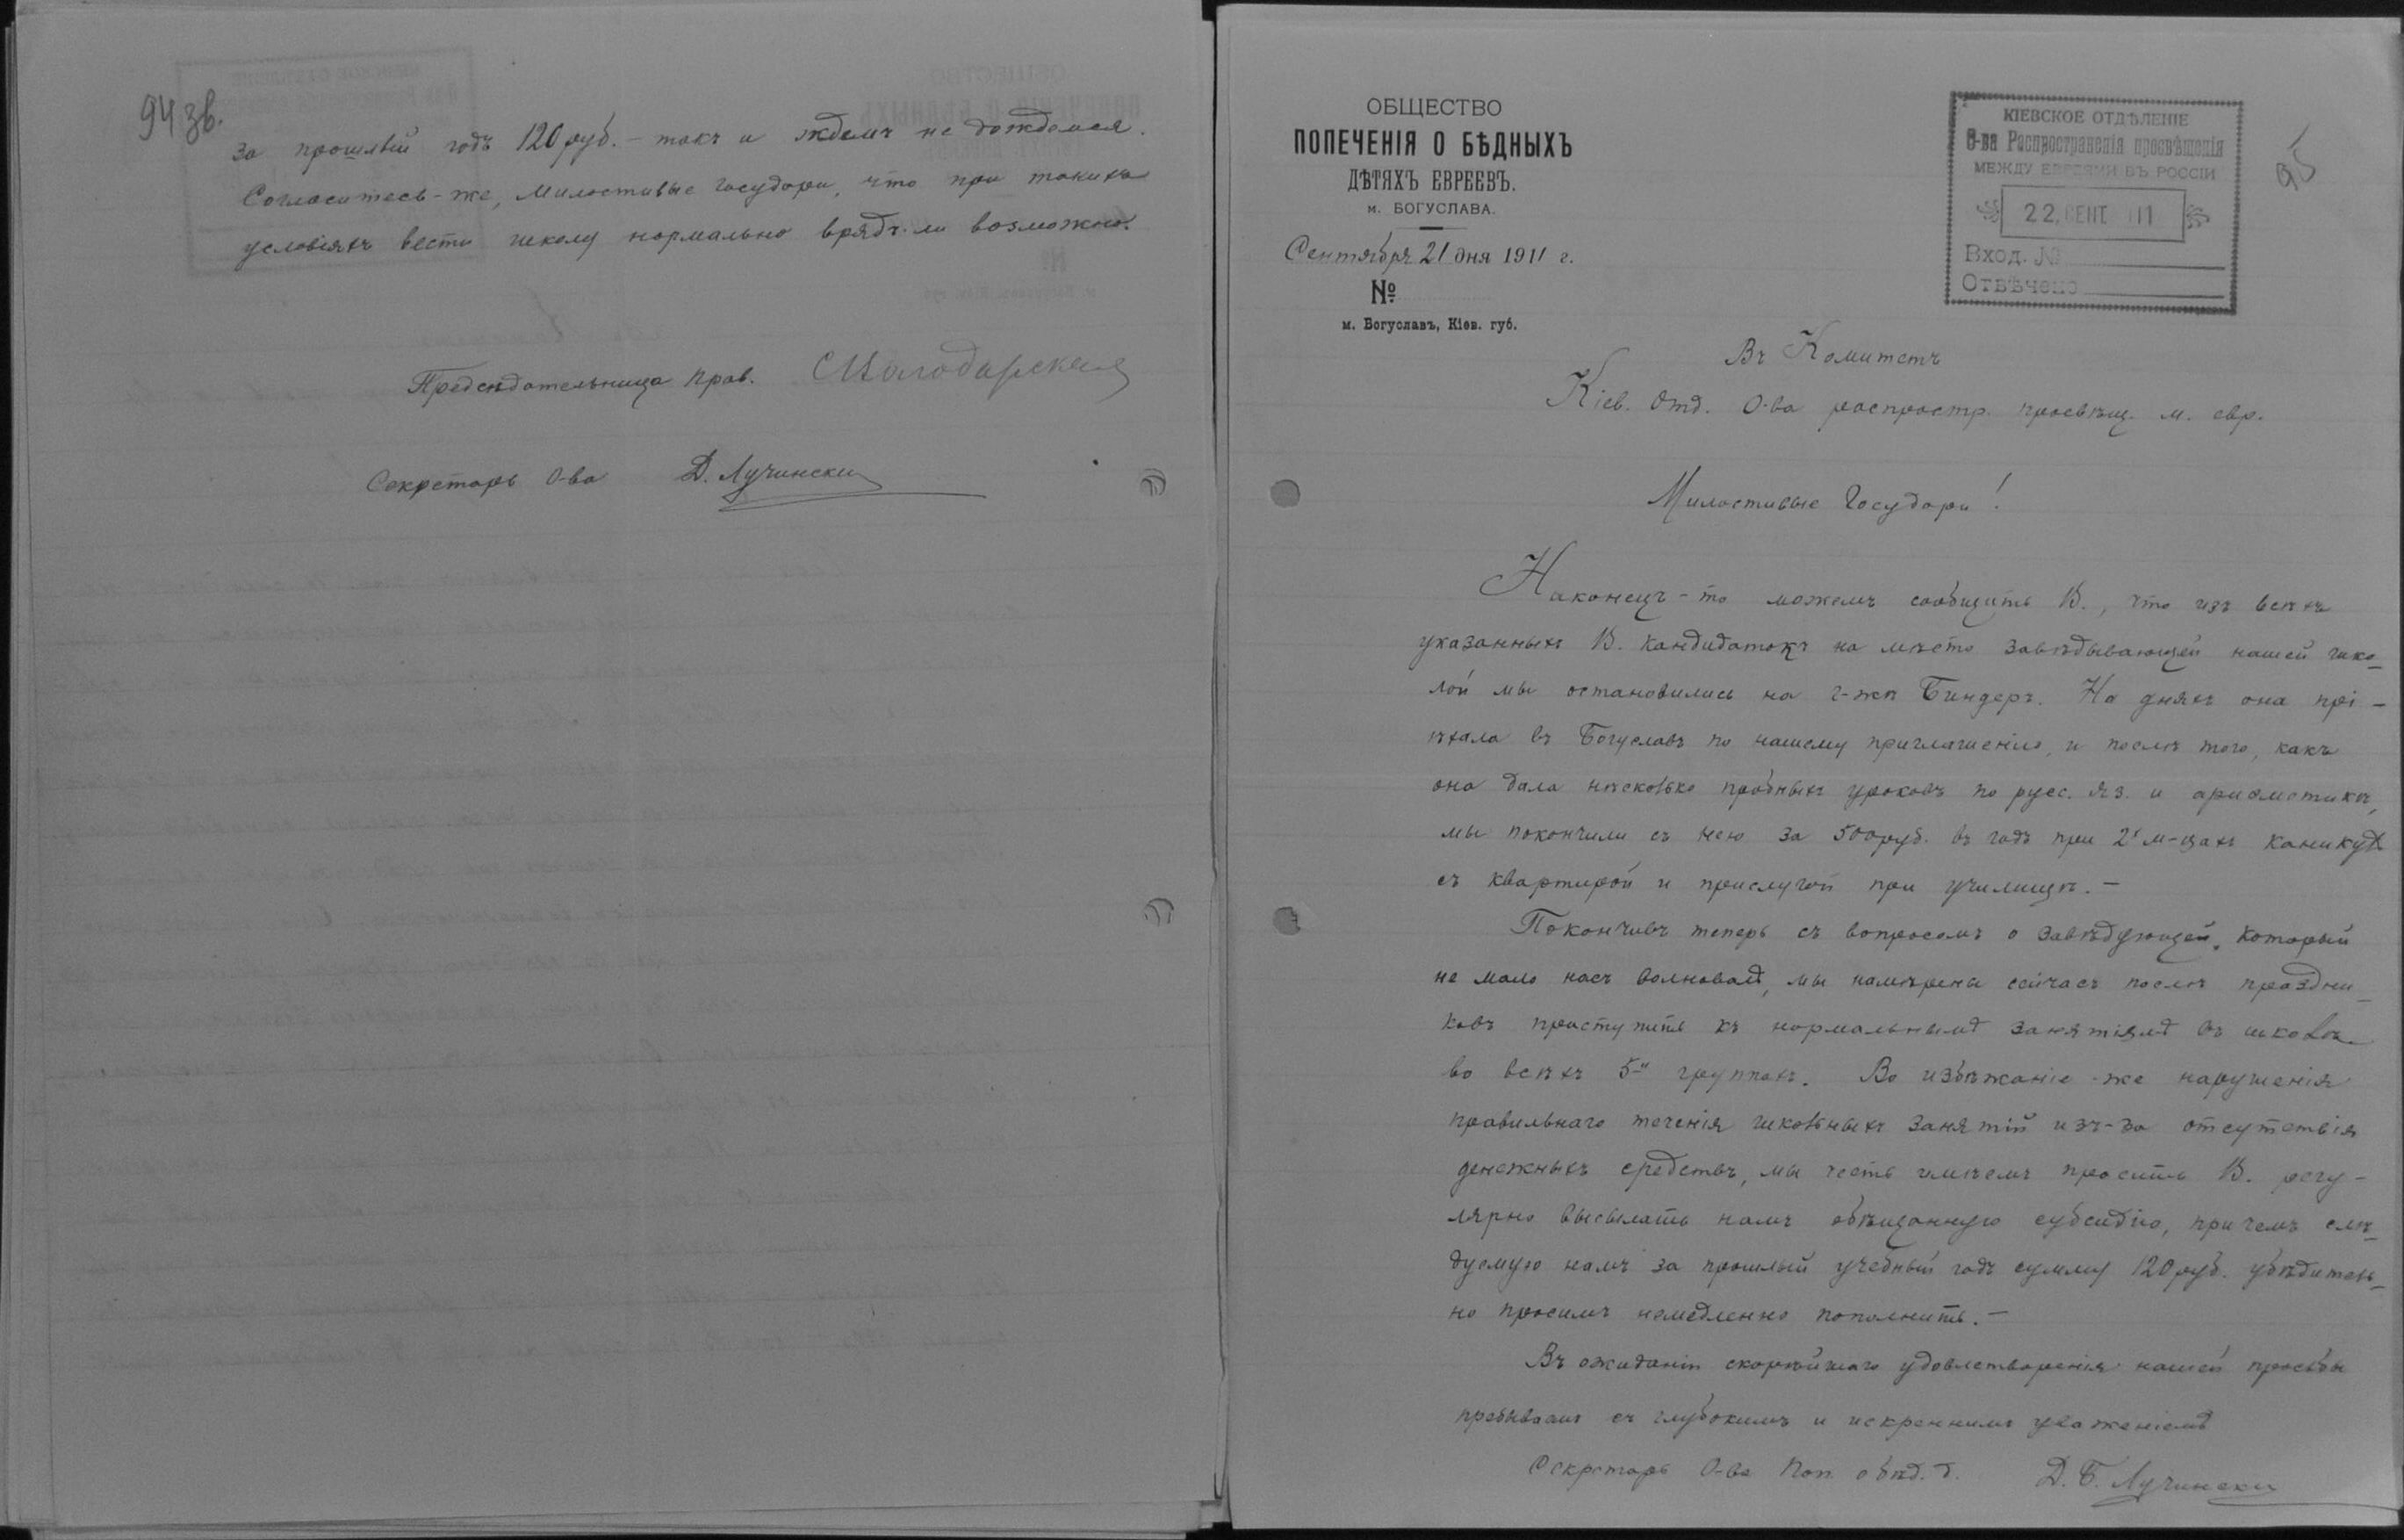 94 зв.
за прошлый годъ 120 руб. – такъ и ждемъ не дождемся.
Согласитесь-же, Милостивые государи, что при такихъ
условіяхъ вести школу нормально врядъ-ли возможно.
Предсѣдательница прав.
Секретарь О-ва Д. Лучински
ОБЩЕСТВО
ПОПЕЧЕНІЯ О БѢДНЫХЪ
ДѢТЯХЪ ЕВРЕЕВЪ.
м. БОГУСЛАВА.
Сентября 21 дня 1911 г.
№
м. Богуславъ, Кіев. губ.
КІЕВСКОЕ ОТДѢЛЕНІЕ
О-ва Распространенія просвѣщенія
МЕЖДУ ЕВРЕЯМИ ВЪ РОССІИ
22. СЕНТ. 111
Вход. №
Отвѣчено
95
Въ Комитетъ
Кіев. Отд. О-ва распростр. просвѣщ. м. евр.
Милостивые Государи!
Наконецъ-то можемъ сообщить В., что изъ всѣхъ
указанныхъ В. кандидатокъ на мѣсто завѣдывающей нашей шко-
лой мы остановились на г-жѣ Биндеръ. На дняхъ она прі-
ѣхала въ Богуславъ по нашему приглашенію, и послѣ того, какъ
она дала нѣсколько пробныхъ уроковъ по русс. яз. и ариѳметикѣ,
мы покончили съ нею за 500 руб. въ годъ при 2х м-цахъ каникул
съ квартирой и прислугой при училищѣ. –
Покончивъ теперь съ вопросомъ о завѣдующей, который
не мало насъ волновалъ, мы намѣрены сейчасъ послѣ праздни-
ковъ приступить къ нормальнымъ занятіямъ въ школѣ
во всѣхъ 5-и группахъ. Во избѣжаніе-же нарушенія
правильнаго теченія школьныхъ занятій изъ-за отсутствія
денежныхъ средствъ, мы честь имѣемъ просить В. регу-
лярно высылать намъ обѣщанную субсидію, причемъ слѣ-
дуемую намъ за прошлый учебный годъ сумму 120 руб. убѣдитель-
но просимъ немедленно пополнить. –
Въ ожиданіи скорѣйшаго удовлетворенія нашей просьбы
пребываемъ съ глубокимъ и искреннимъ уваженіемъ
Секретарь О-ва Поп. о бѣд. д. Д. Б. Лучински